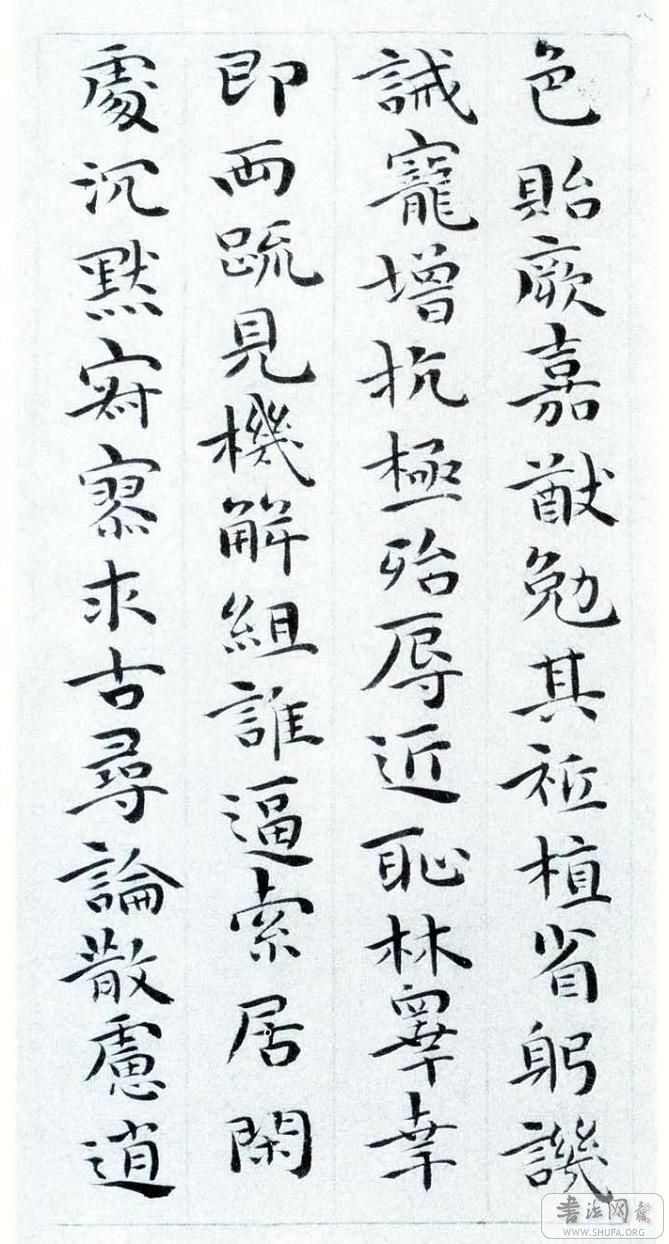 色貽厥嘉猷勉其祗植省躬譏
誡寵增抗極殆辱近恥林睾幸
即兩疏見機解組誰逼索居閑
處沉默寂寥求古尋論散慮逍
書法网
WWW.SHUFA.ORG